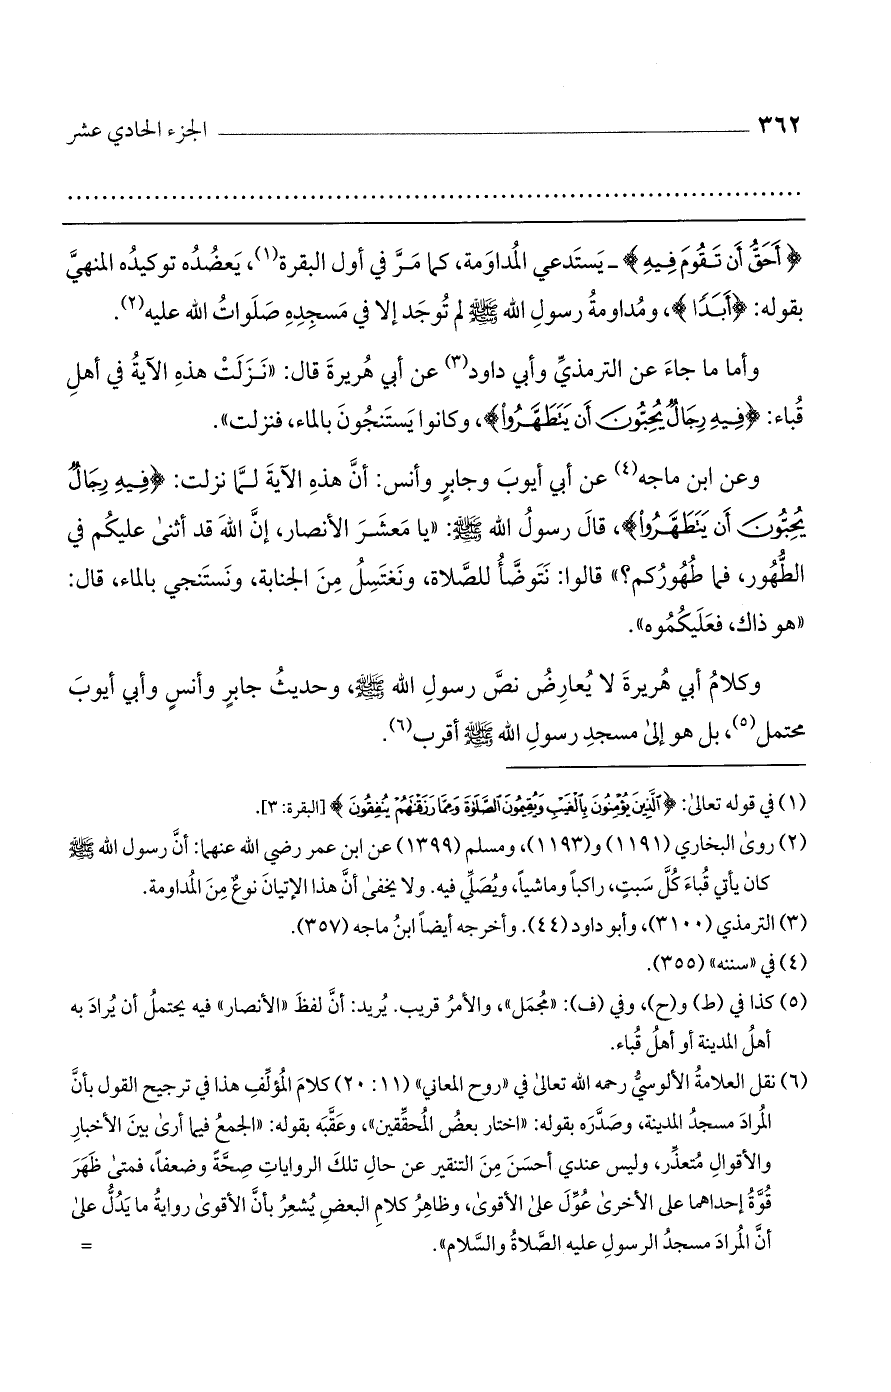 ٣٦٢ ــــــــــــــــــــ الجزء الحادي عشر
................................................................................
﴿أَحَقُّ أَن تَقُومَ فِيهِ﴾ ـ يَستَدعي المُداوَمة، كما مَـرَّ في أول البقرة(١)، يَعضُدُه توكيدُه المنهيَّ
بقوله: ﴿أَبَدًا﴾، ومُداومةُ رسولِ الله ﷺ لم تُوجَد إلا في مَسجِدِهِ صَلَواتُ الله عليه(٢).
وأما ما جاءَ عن الترمذيِّ وأبي داود(٣) عن أبي هُريرةَ قال: «نَـزَلَتْ هذهِ الآيةُ في أهلِ
قُباء: ﴿فِيهِ رِجَالٌ يُحِبُّونَ أَن يَتَطَهَّرُوا۟﴾، وكانوا يَستَنجُونَ بالماء، فنزلت».
وعن ابن ماجه(٤) عن أبي أيوبَ وجابرٍ وأنس: أنَّ هذهِ الآيةَ لـمَّا نزلت: ﴿فِيهِ رِجَالٌ
يُحِبُّونَ أَن يَتَطَهَّرُوا۟﴾، قالَ رسولُ الله ﷺ: «يا مَعشَـرَ الأنصار، إنَّ اللهَ قد أثنىٰ عليكُم في
الطُّهُور، فما طُهُورُكم؟» قالوا: نَتَوضَّأُ للصَّلاة، ونَغتَسِلُ مِنَ الجنابة، ونَستَنجي بالماء، قال:
«هو ذاك، فعَلَيكُمُوه».
وكلامُ أبي هُريرةَ لا يُعارِضُ نصَّ رسولِ الله ﷺ، وحديثُ جابرٍ وأنسٍ وأبي أيوبَ
محتمل(٥)، بل هو إلىٰ مسجدِ رسولِ الله ﷺ أقرب(٦).
(١) في قوله تعالىٰ: ﴿ٱلَّذِينَ يُؤْمِنُونَ بِٱلْغَيْبِ وَيُقِيمُونَ ٱلصَّلَوٰةَ وَمِمَّا رَزَقْنَٰهُمْ يُنفِقُونَ﴾ [البقرة: ٣].
(٢) روىٰ البخاري (١١٩١) و(١١٩٣)، ومسلم (١٣٩٩) عن ابن عمر رضي الله عنهما: أنَّ رسول الله ﷺ
كان يأتي قُباءَ كُلَّ سَبتٍ، راكباً وماشياً، ويُصَلِّي فيه. ولا يخفىٰ أنَّ هذا الإتيانَ نوعٌ مِنَ المُداومة.
(٣) الترمذي (٣١٠٠)، وأبو داود (٤٤). وأخرجه أيضاً ابنُ ماجه (٣٥٧).
(٤) في «سننه» (٣٥٥).
(٥) كذا في (ط) و(ح)، وفي (ف): «مُجمَل»، والأمرُ قريب. يُريد: أنَّ لفظَ «الأنصار» فيه يحتملُ أن يُرادَ به
أهلُ المدينة أو أهلُ قُباء.
(٦) نقل العلامةُ الألوسيُّ رحمه الله تعالىٰ في «روح المعاني» (١١: ٢٠) كلامَ المُؤلِّفِ هذا في ترجيح القول بأنَّ
المُرادَ مسجدُ المدينة، وصَدَّرَه بقوله: «اختار بعضُ المُحقِّقين»، وعَقَّبَه بقوله: «الجمعُ فيما أرىٰ بينَ الأخبارِ
والأقوالِ مُتعذِّر، وليس عندي أحسَنَ مِنَ التنقير عن حالِ تلكَ الرواياتِ صِحَّةً وضعفاً، فمتىٰ ظَهَرَ
قُوَّةُ إحداهما على الأخرىٰ عُوِّلَ علىٰ الأقوىٰ، وظاهِرُ كلامِ البعضِ يُشعِرُ بأنَّ الأقوىٰ روايةُ ما يَدُلُّ علىٰ
أنَّ المُرادَ مسجدُ الرسولِ عليه الصَّلاةُ والسَّلام». =